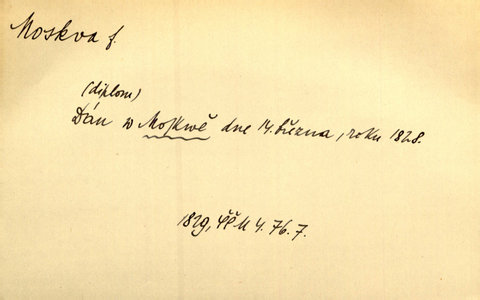 Moskva f.
(diplom)
Dán w Moskwě dne 14. března, roku 1828.
1829, ČČM 4. 76. 7.